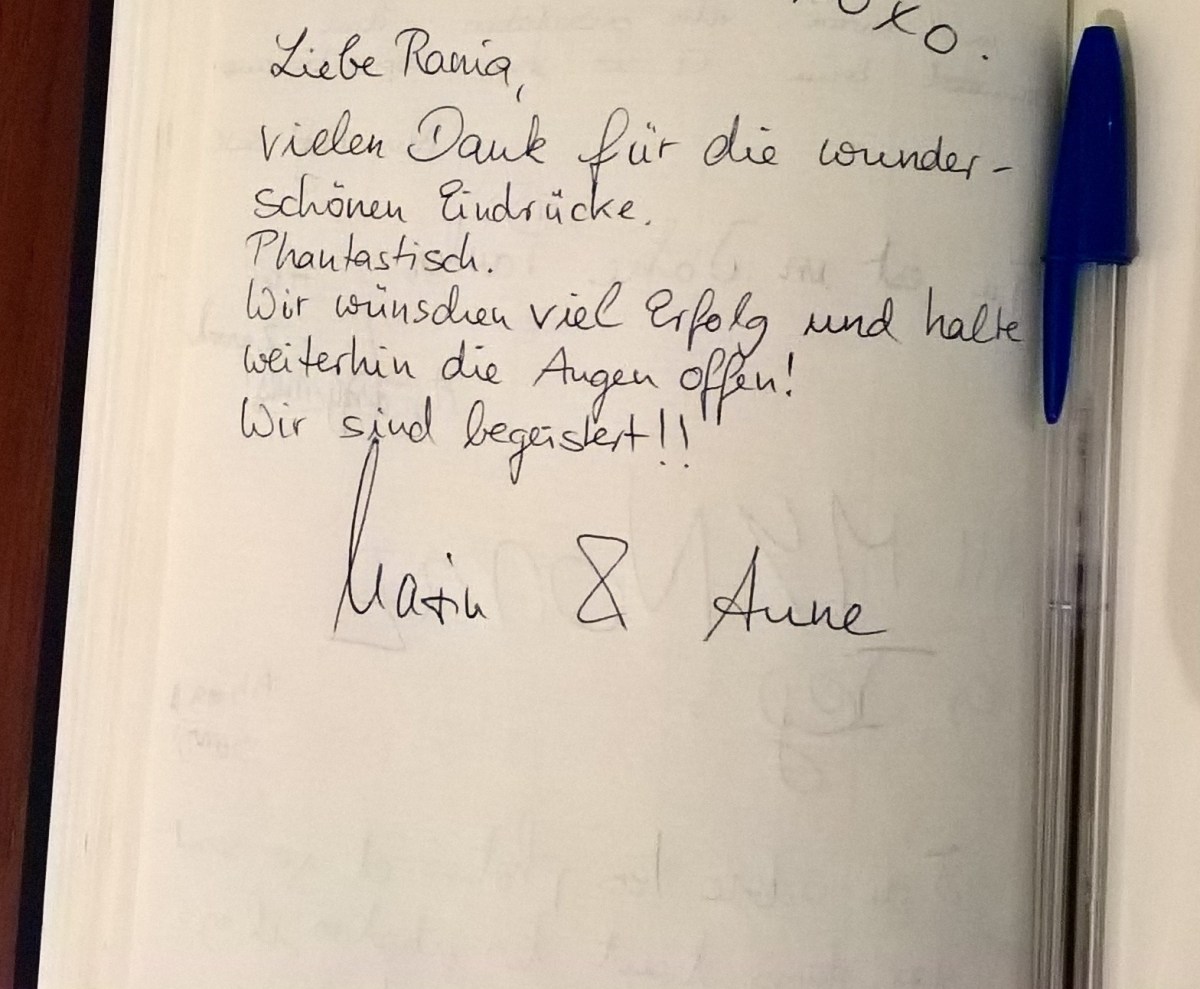 oxo.
Liebe Rania,
vielen Dank für die wunder-
schönen Eindrücke.
Phantastisch.
Wir wünschen viel Erfolg und halte
weiterhin die Augen offen!
Wir sind begeistert!!
& Anne